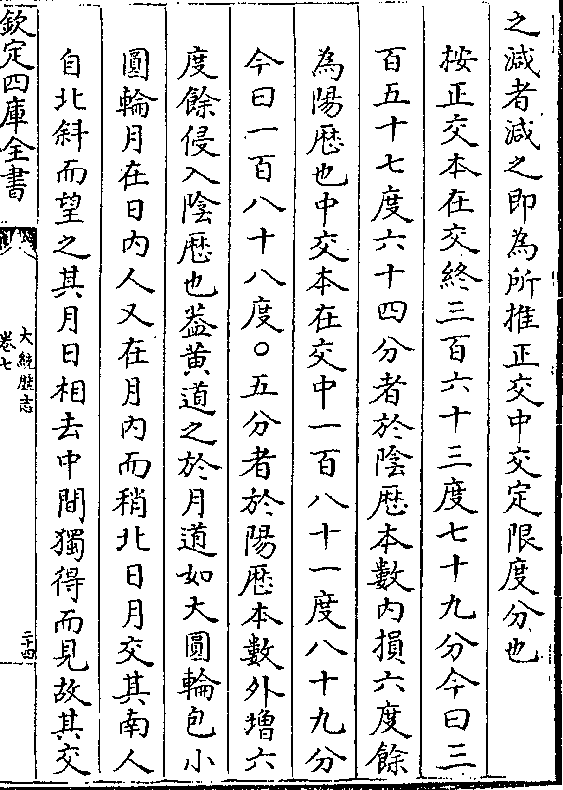 之減者減之即為所推正交中交定限度分也
按正交本在交終三百六十三度七十九分今曰三
百五十七度六十四分者於陰厯本數內損六度餘
為陽厯也中交本在交中一百八十一度八十九分
今曰一百八十八度○五分者於陽厯本數外增六
度餘侵入陰厯也葢黄道之於月道如大圓輪包小
圓輪月在日内人又在月内而稍北日月交其南人
自北斜而望之其月日相去中間獨得而見故其交
欽定四庫全書
大統厯志
卷七
二十四